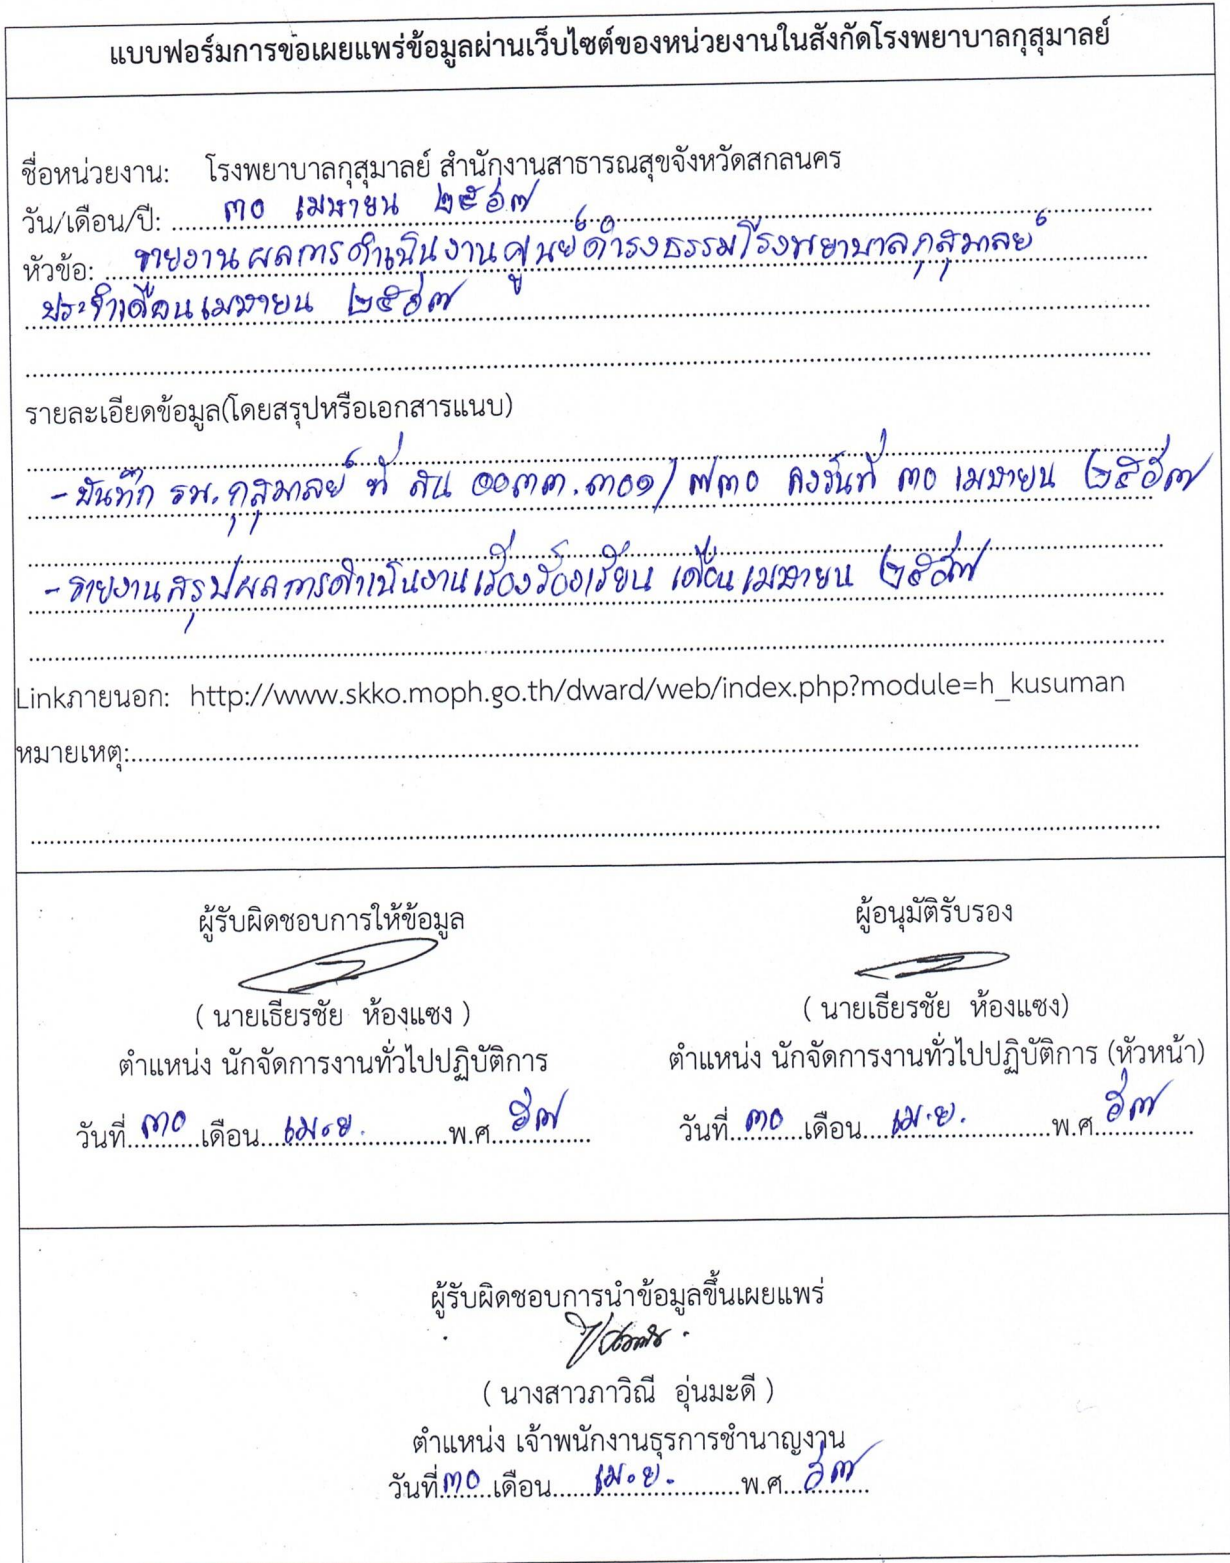 แบบฟอร์มการขอเผยแพร่ข้อมูลผ่านเว็บไซต์ของหน่วยงานในสังกัดโรงพยาบาลกุสุมาลย์
ชื่อหน่วยงาน: โรงพยาบาลกุสุมาลย์ สำนักงานสาธารณสุขจังหวัดสกลนคร
วัน/เดือน/ปี: ๓๐ เมษายน ๒๕๖๗
หัวข้อ: รายงานผลการดำเนินงานศูนย์ดำรงธรรมโรงพยาบาลกุสุมาลย์
ประจำเดือนเมษายน ๒๕๖๗
รายละเอียดข้อมูล(โดยสรุปหรือเอกสารแนบ)
- บันทึก รพ.กุสุมาลย์ ที่ สน ๐๐๓๓.๓๐๑/๗๓๐ ลงวันที่ ๓๐ เมษายน ๒๕๖๗
- รายงานสรุปผลการดำเนินงานเรื่องร้องเรียน เดือนเมษายน ๒๕๖๗
Linkภายนอก: http://www.skko.moph.go.th/dward/web/index.php?module=h_kusuman
หมายเหตุ:
ผู้รับผิดชอบการให้ข้อมูล ผู้อนุมัติรับรอง
( นายเธียรชัย ห้องแซง ) ( นายเธียรชัย ห้องแซง)
ตำแหน่ง นักจัดการงานทั่วไปปฏิบัติการ ตำแหน่ง นักจัดการงานทั่วไปปฏิบัติการ (หัวหน้า)
วันที่ ๓๐ เดือน เม.ย. พ.ศ. ๖๗ วันที่ ๓๐ เดือน เม.ย. พ.ศ. ๖๗
ผู้รับผิดชอบการนำข้อมูลขึ้นเผยแพร่
( นางสาวภาวิณี อุ่นมะดี )
ตำแหน่ง เจ้าพนักงานธุรการชำนาญงาน
วันที่ ๓๐ เดือน เม.ย. พ.ศ. ๖๗